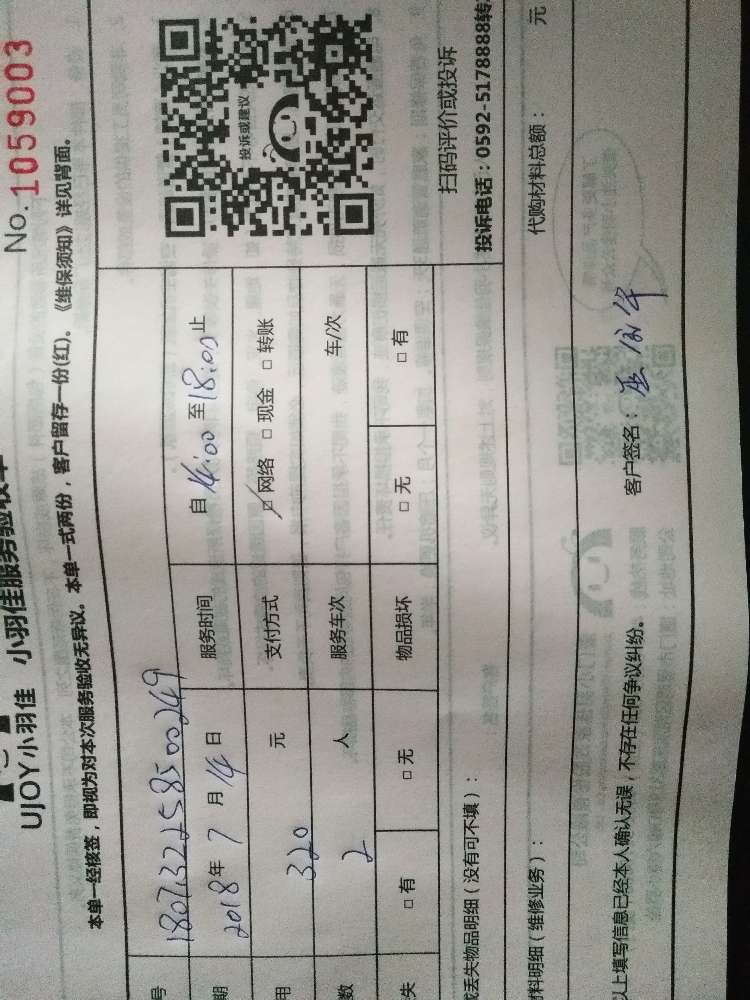 No. 1059003
UJOY小羽佳 小羽佳服务验收单
本单一经核签，即视为对本次服务验收无异议。本单一式两份，客户留存一份(红)。《维保须知》详见背面。
号 1807132258500249
期 2018年7月14日 服务时间 自14:00至18:00止
用 320 元 支付方式 ☑网络 □现金 □转账
数 2 人 服务车次 车/次
失 □有 □无 物品损坏 □无 □有
投诉或建议
扫码评价或投诉
投诉电话：0592-5178888转
或丢失物品明细（没有可不填）：
材料明细（维修业务）： 代购材料总额： 元
以上填写信息已经本人确认无误，不存在任何争议纠纷。 客户签名：